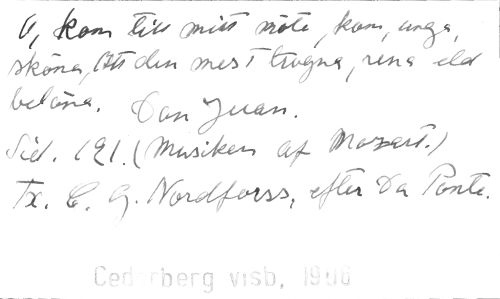 O, kom till mitt möte, kom, unga,
sköna, Att den mest trogna, rena eld
belöna. Don Juan.
Sid. 191. (Musiken af Mozart.)
Tx. C. G. Nordforss, efter Da Ponte.
Cederberg visb, 1906